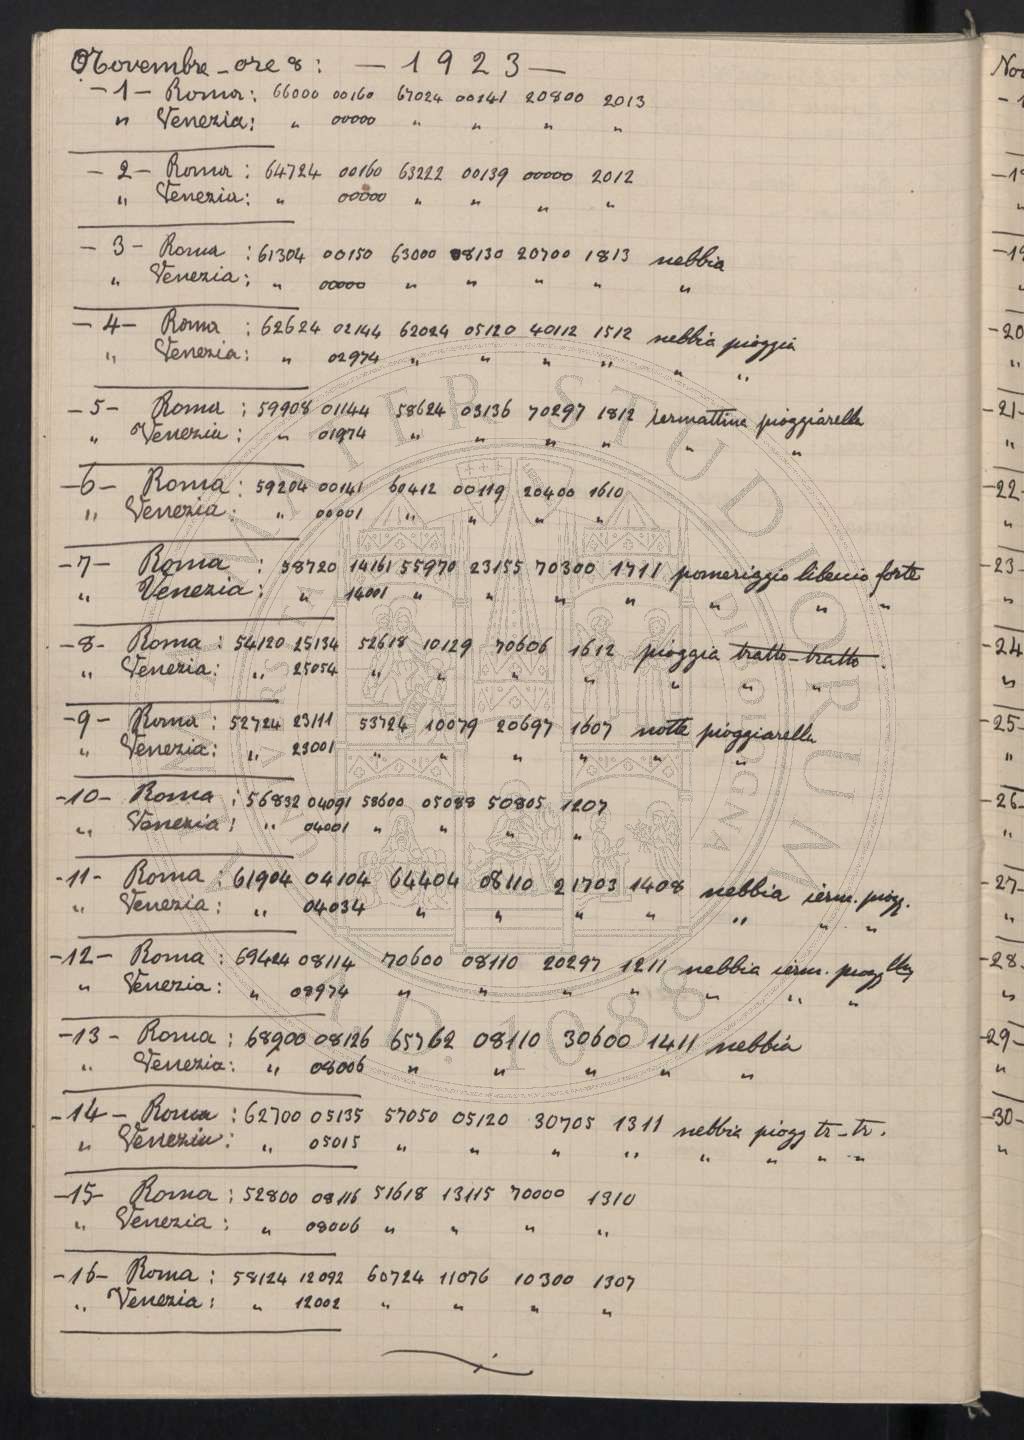 Novembre - ore 8: - 1923 -
- 1 - Roma: 66000 00160 67024 00141 20800 2013
" Venezia: " 00000 " " " "
- 2 - Roma: 64724 00160 63222 00139 00000 2012
" Venezia: " 00000 " " " "
- 3 - Roma: 61304 00150 63000 08130 20700 1813 nebbia
" Venezia: " 00000 " " " " "
- 4 - Roma: 62624 02144 62024 05120 40112 1512 nebbia pioggia
" Venezia: " 02974 " " " " " "
- 5 - Roma: 59908 01144 58624 03136 70297 1812 iermattina pioggiarella
" Venezia: " 01974 " " " " " "
- 6 - Roma: 59204 00141 60412 00119 20400 1610
" Venezia: " 00001 " " " "
- 7 - Roma: 58720 14161 55970 23155 70300 1711 pomeriggio libeccio forte
" Venezia: " 14001 " " " " " " "
- 8 - Roma: 54120 25134 52618 10129 70606 1612 pioggia tratto-tratto.
" Venezia: " 25054 " " " " " " "
- 9 - Roma: 52724 23111 53724 10079 20697 1607 notte pioggiarella
" Venezia: " 23001 " " " " " "
- 10 - Roma: 56832 04091 58600 05088 50805 1207
" Venezia: " 04001 " " " "
- 11 - Roma: 61904 04104 64404 08110 21703 1408 nebbia ierm. piogg.
" Venezia: " 04034 " " " " " " "
- 12 - Roma: 69424 08114 70600 08110 20297 1211 nebbia ierm.
" Venezia: " 08974 " " " " " " "
- 13 - Roma: 68900 08126 65762 08110 30600 1411 nebbia
" Venezia: " 08006 " " " " "
- 14 - Roma: 62700 05135 57050 05120 30705 1311 nebbia piogg tr-tr.
" Venezia: " 05015 " " " " " " " "
- 15 - Roma: 52800 08116 51618 13115 70000 1310
" Venezia: " 08006 " " " "
- 16 - Roma: 58124 12092 60724 11076 10300 1307
" Venezia: " 12002 " " " "
Nov
- 19
"
- 20
"
- 21 -
"
- 22 -
"
- 23 -
"
- 24
"
- 25 -
"
- 26 -
"
- 27 -
"
- 28 -
"
- 29 -
"
- 30 -
"
ALMA MATER STUDIORUM
A.D. 1088